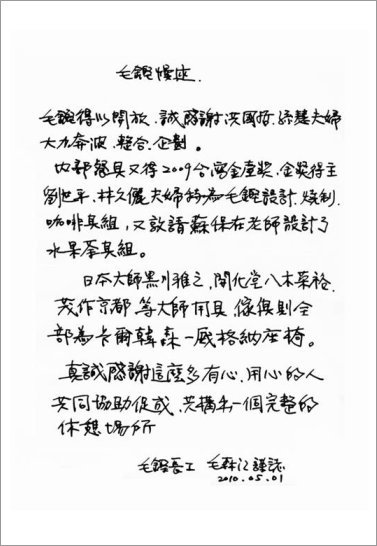 毛鏗慢座.
毛鏗得以開放、誠感謝洪國哲、綵慧夫婦
大力奔波、整合、企劃。
內部餐具又得2009台灣金壺奬、金奬得主
劉世平、林久儷夫婦特為毛鏗設計、燒制
咖啡具組，又敦請蘇保在老師設計了
水果茶具組。
日本大師黑川雅之、開化堂八木榮裕、
茂作京都、等大師用具、傢俱則全
部為卡爾韓森一風格納座椅。
真誠感謝這麼多有心、用心的人
共同協助促成、共構出一個完整的
休憩場所
毛鏗長工 毛森江謹誌
2010.05.01